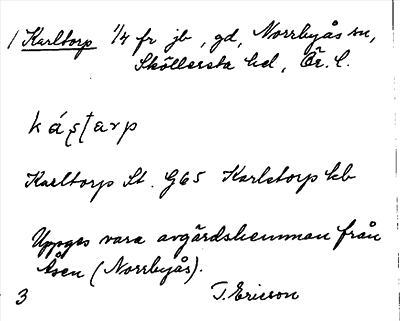 1 Karltorp 1/4 fr jb, gd, Norrbyås sn,
Sköllersta hd, Ör. l.
káʂʈarp
Karltorp St. G65 Karlstorp kb
Uppges vara avgärdshemman från
Åsen (Norrbyås).
3 T. Ericson